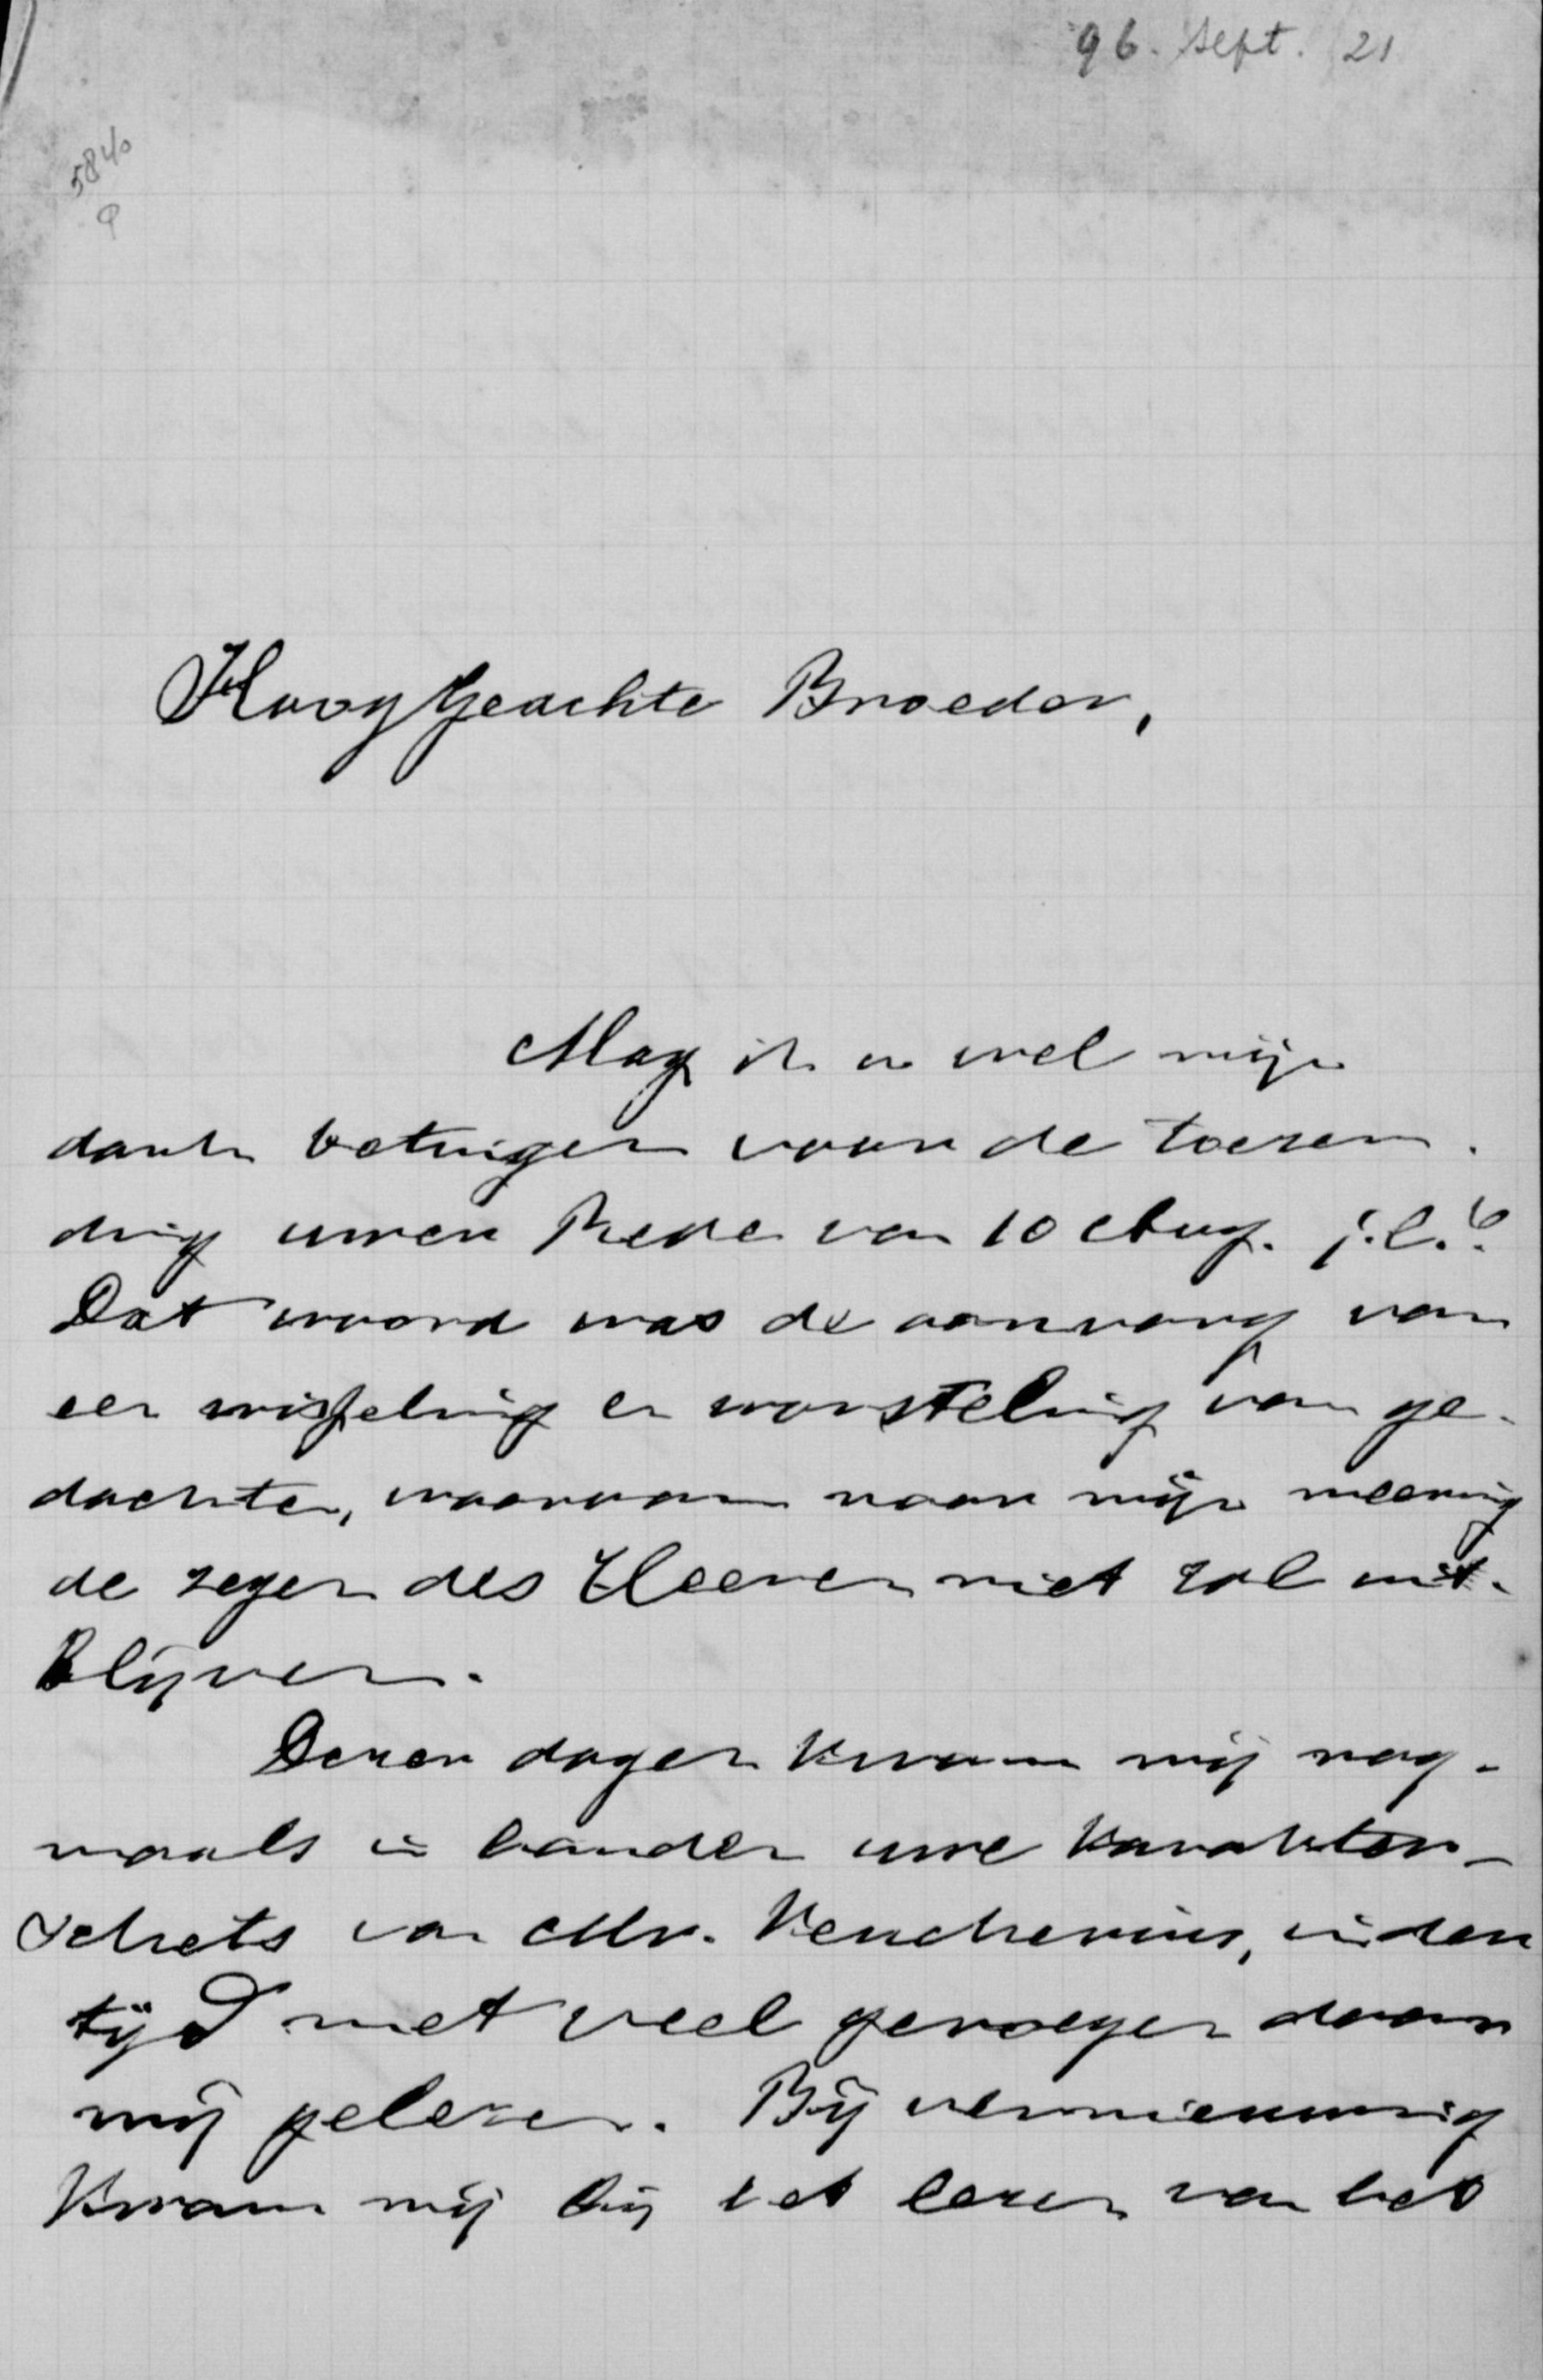 96. Sept. 21
5840
HoogGeachte Broeder,
Mag ik u wel mijn
dank betuigen voor de toezen-
ding uwer Rede van 10 Aug. j.l.?
Dat woord was de aanvang van
een wisseling en worsteling van ge-
dachten, waarvan naar mijn meening
de zegen des Heeren niet zal uit-
blijven.
Dezer dagen kwam mij nog-
maals in handen uwe karakter-
schets van Mr. Keuchenius, in den
tijd met veel genoegen door
mij gelezen. Bij vernieuwing
kwam mij bij het lezen van het